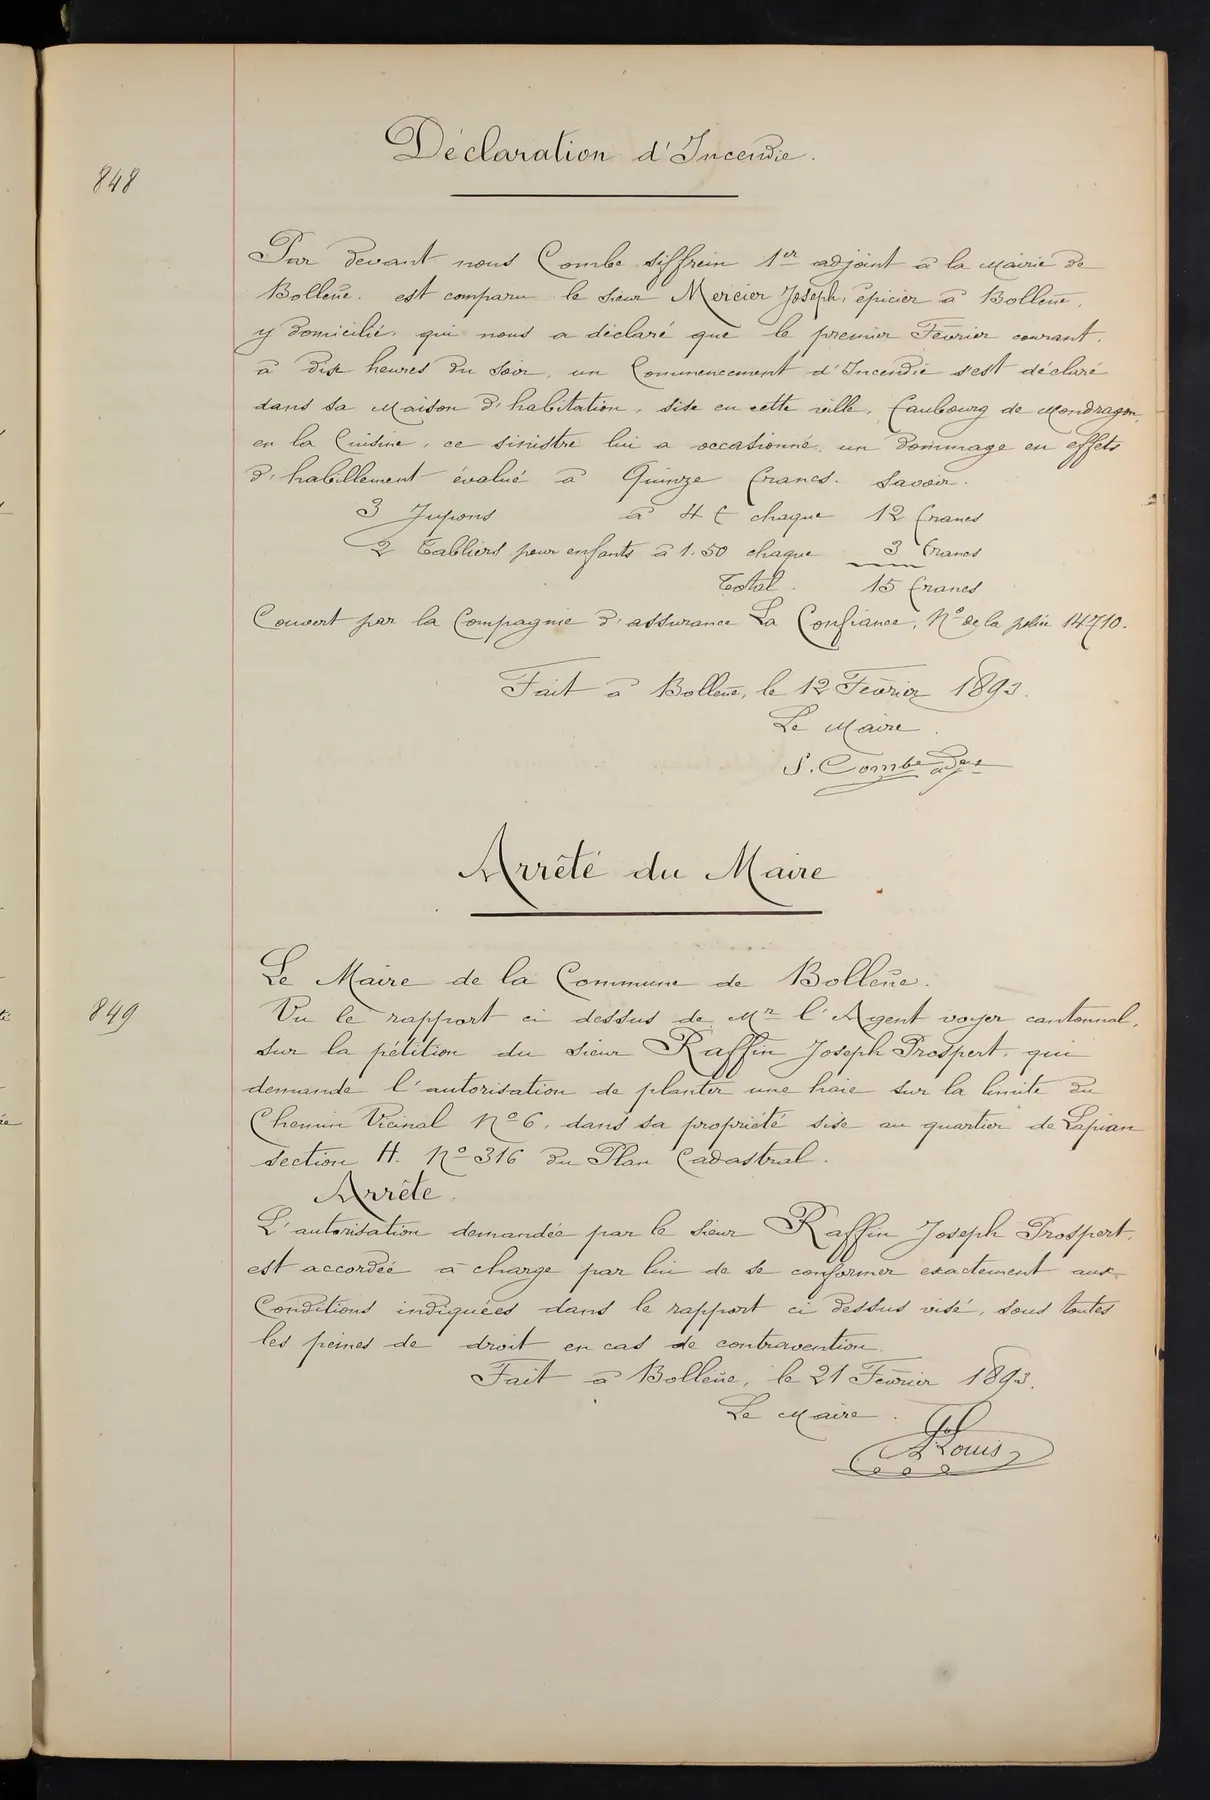 Déclaration d'Incendie.
848
Par devant nous Combe Siffrein 1er adjoint à la Mairie de
Bollène. est comparu le sieur Mercier Joseph, épicier à Bollène,
y domicilié, qui nous a déclaré que le premier Février courant,
à dix heures du soir, un Commencement d'Incendie s'est déclaré
dans sa Maison d'habitation, sise en cette ville, faubourg de Mondragon,
en la Cuisine, ce sinistre lui a occasionné, un dommage en effets
d'habillement évalué à Quinze francs. Savoir.
3 Jupons à 4 f chaque 12 francs
2 Tabliers pour enfants à 1.50 chaque 3 francs
Total. 15 francs
Couvert par la Compagnie d'assurance La Confiance, No de la police 14710.
Fait à Bollène, le 12 Février 1893.
Le Maire.
S. Combe
Arrêté du Maire
Le Maire de la Commune de Bollène.
849
Vu le rapport ci dessus de Mr l'Agent voyer cantonnal,
sur la pétition du sieur Raffin Joseph Prospert, qui
demande l'autorisation de planter une haie sur la limite du
Chemin Vicinal No 6, dans sa propriété sise au quartier de Lapian
section H. No 316 du Plan Cadastral.
Arrête.
L'autorisation demandée par le sieur Raffin Joseph Prospert,
est accordée à charge par lui de se conformer exactement aux
Conditions indiquées dans le rapport ci dessus visé, sous toutes
les peines de droit en cas de contravention.
Fait à Bollène, le 21 Février 1893.
Le Maire.
Louis